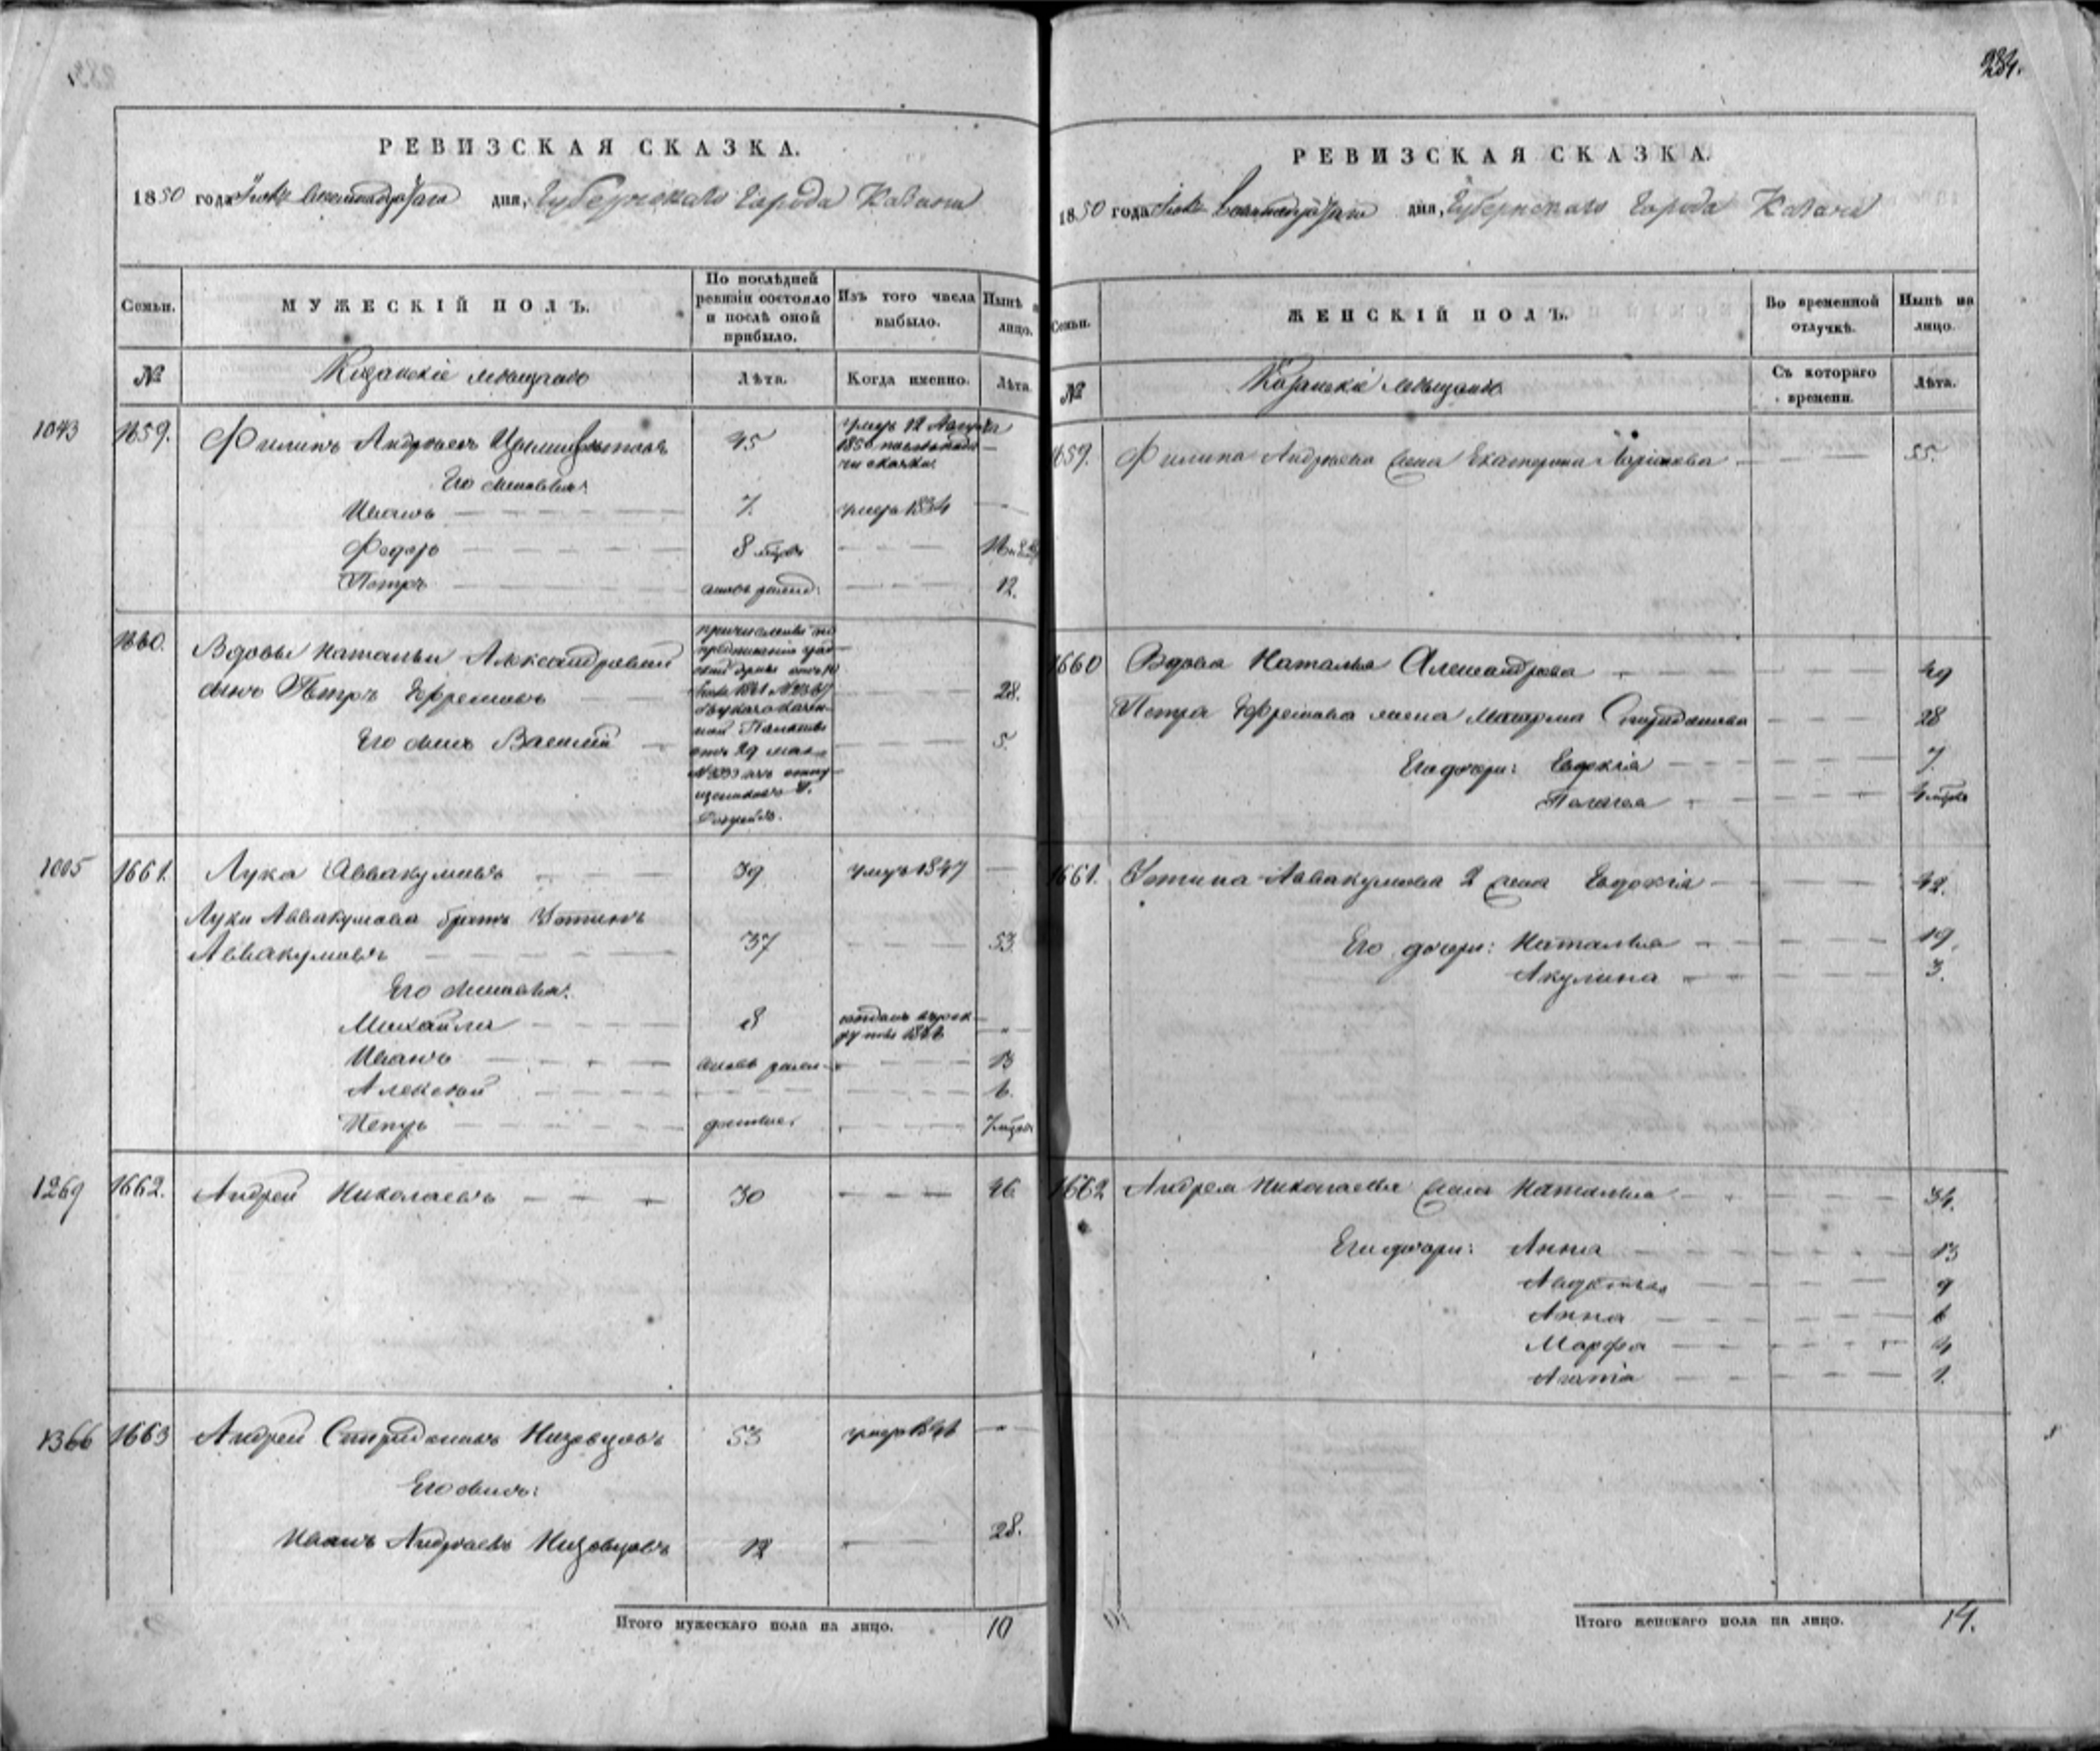 284.
РЕВИЗСКАЯ СКАЗКА.
1850 года дня, Губернскаго Города Казани
Семьи.
МУЖЕСКІЙ ПОЛЪ.
По послѣдней ревизіи состояло и послѣ оной прибыло.
Изъ того числа выбыло.
Нынѣ лицо.
№
Казанскіе мѣщане
Лѣта.
Когда именно.
Лѣта.
1043 1659. Филипъ Андреевъ 45 умеръ 12
1850
сказки
Его сыновья:
Иванъ 7. умеръ 1834
Федоръ 8 мѣсяц
Петръ 12.
1660. Вдовы Натальи Александровой
сынъ Петръ Ефремовъ 28.
Его сынъ Василій 5.
причисленъ по
Палаты
отъ 29 мая
1005 1661. Лука Аввакумовъ 39 умеръ 1847
Луки Аввакумова братъ Устинъ
Аввакумовъ 37 53
Его сыновья:
Михайла 8
Иванъ 13
Алексѣй 6.
Петръ 7 мѣсяц
1269 1662. Андрей Николаевъ 30 46
1366 1663 Андрей Спиридоновъ Низовцовъ 53 умеръ 1846
Его сынъ:
Иванъ Андреевъ Низовцовъ 12 28.
Итого мужескаго пола на лицо. 10
РЕВИЗСКАЯ СКАЗКА.
1850 года дня, Губернскаго Города Казани
Семьи.
ЖЕНСКІЙ ПОЛЪ.
Во временной отлучкѣ.
Нынѣ на лицо.
№
Казанскіе мѣщане
Съ котораго времени.
Лѣта.
1659. Филипа Андреева жена Екатерина 55.
1660 Вдова Наталья Александрова 49
Петра Ефремова жена Матрена Спиридонова 28
Его дочери: Евдокія 7.
Пелагея 4 мѣсяц
1661. Устина Аввакумова 2 жена Евдокія 42.
Его дочери: Наталья 19.
Акулина 3.
1662 Андрея Николаева жена Наталья 34.
Его дочери: Анна 13
Авдотья 9
Анна 6
Марфа 4
Агафія 1.
Итого женскаго пола на лицо. 14.